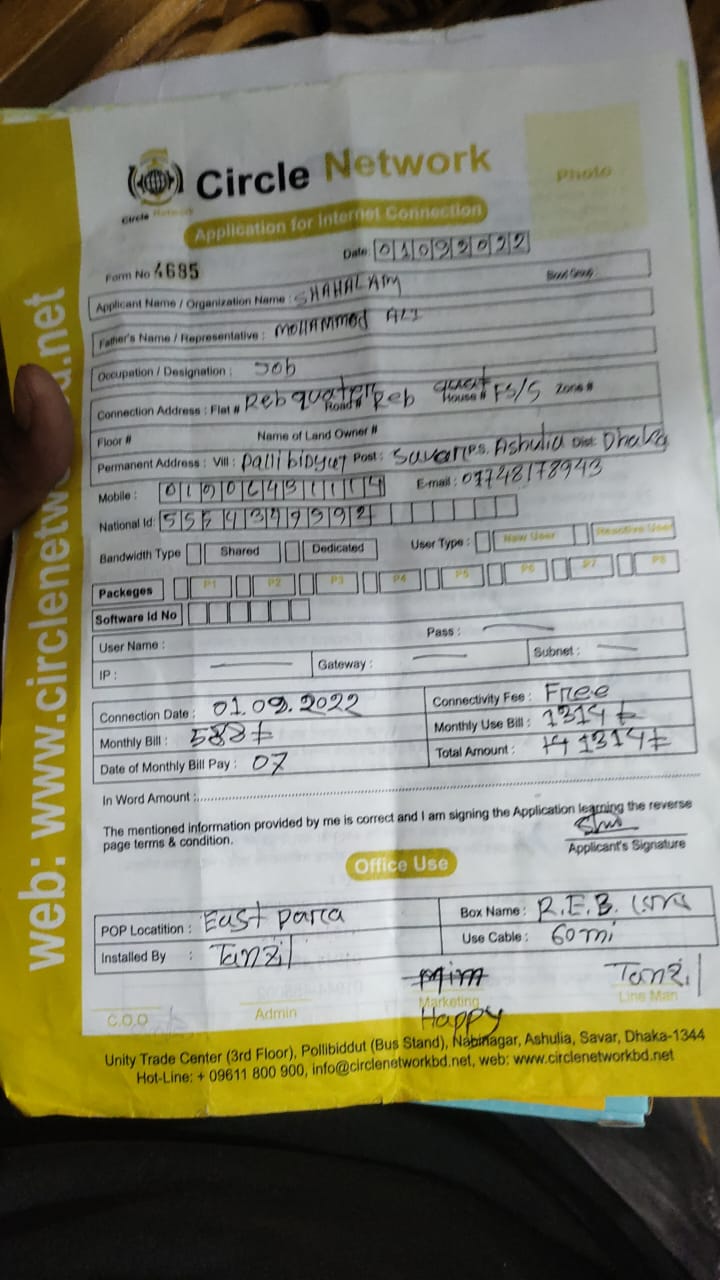 Circle Network
Circle Network
Photo
Application for Internet Connection
Date: 01092022
Form No 4685
Applicant Name / Organization Name : SHAHALAM Blood Group:
Father's Name / Representative : MOHAMMOD ALI
Occupation / Designation : Job
Connection Address : Flat # Reb quater Road # Reb House # F5/S Zone #
Floor # Name of Land Owner #
Permanent Address : Vill : Pallibidyut Post : Savar Ps. Ashulia Dist: Dhaka
Mobile : E-mail : 01748178943
National Id:
Bandwidth Type Shared Dedicated User Type : New User Reactive User
Packeges P1 P2 P3 P4 P5 P6 P7 P8
Software Id No
User Name : Pass :
IP : Gateway : Subnet :
Connection Date : 01.09.2022 Connectivity Fee : Free
Monthly Bill : 588 Monthly Use Bill : 1314
Date of Monthly Bill Pay : 07 Total Amount : 1314
In Word Amount :
The mentioned information provided by me is correct and I am signing the Application learning the reverse
page terms & condition.
Applicant's Signature
Office Use
POP Locatition : East para Box Name : R.E.B.
Installed By : Tanzil Use Cable : 60 mi
Mim Tanzil
C.O.O Admin Marketing Line Man
Happy
Unity Trade Center (3rd Floor), Pollibiddut (Bus Stand), Nabinagar, Ashulia, Savar, Dhaka-1344
Hot-Line: + 09611 800 900, info@circlenetworkbd.net, web: www.circlenetworkbd.net
web: www.circlenetwo d.net